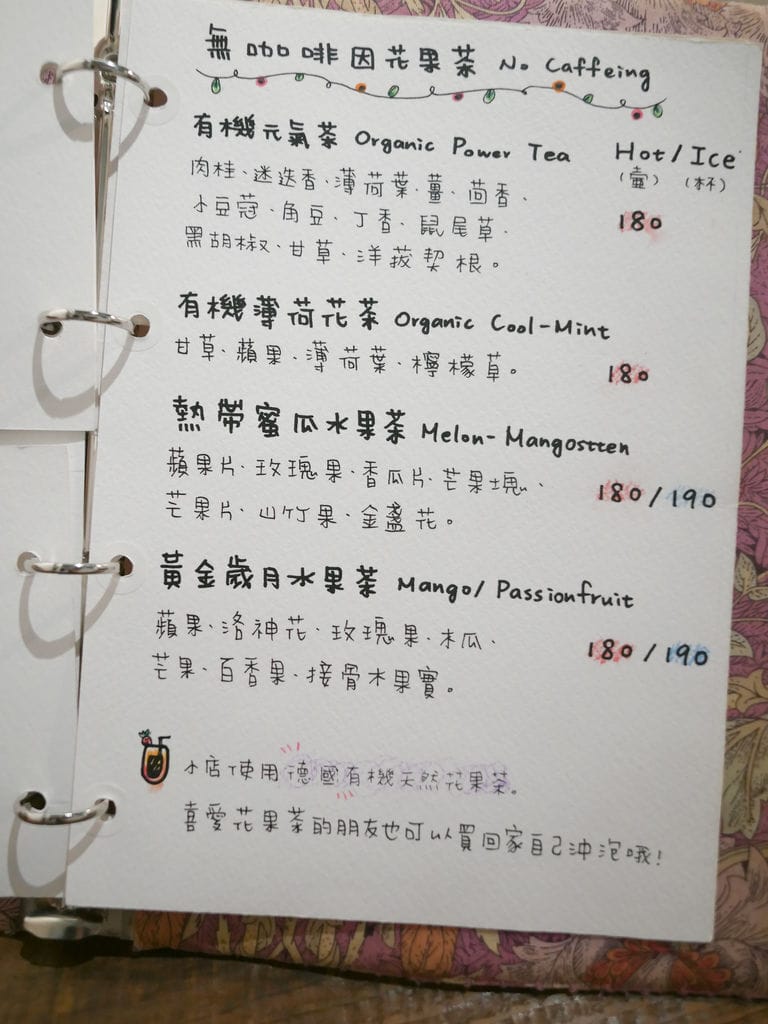 無咖啡因花果茶 No Caffeing
有機元氣茶 Organic Power Tea Hot/Ice
(壺) (杯)
肉桂、迷迭香、薄荷葉、薑、茴香、
小豆蔻、角豆、丁香、鼠尾草、 180
黑胡椒、甘草、洋菝契根。
有機薄荷花茶 Organic Cool-Mint
甘草、蘋果、薄荷葉、檸檬草。 180
熱帶蜜瓜水果茶 Melon-Mangostten
蘋果片、玫瑰果、香瓜片、芒果塊、 180/190
芒果片、山竹果、金盞花。
黃金歲月水果茶 Mango/Passionfruit
蘋果、洛神花、玫瑰果、木瓜、 180/190
芒果、百香果、接骨木果實。
小店使用德國有機天然花果茶。
喜愛花果茶的朋友也可以買回家自己沖泡哦!